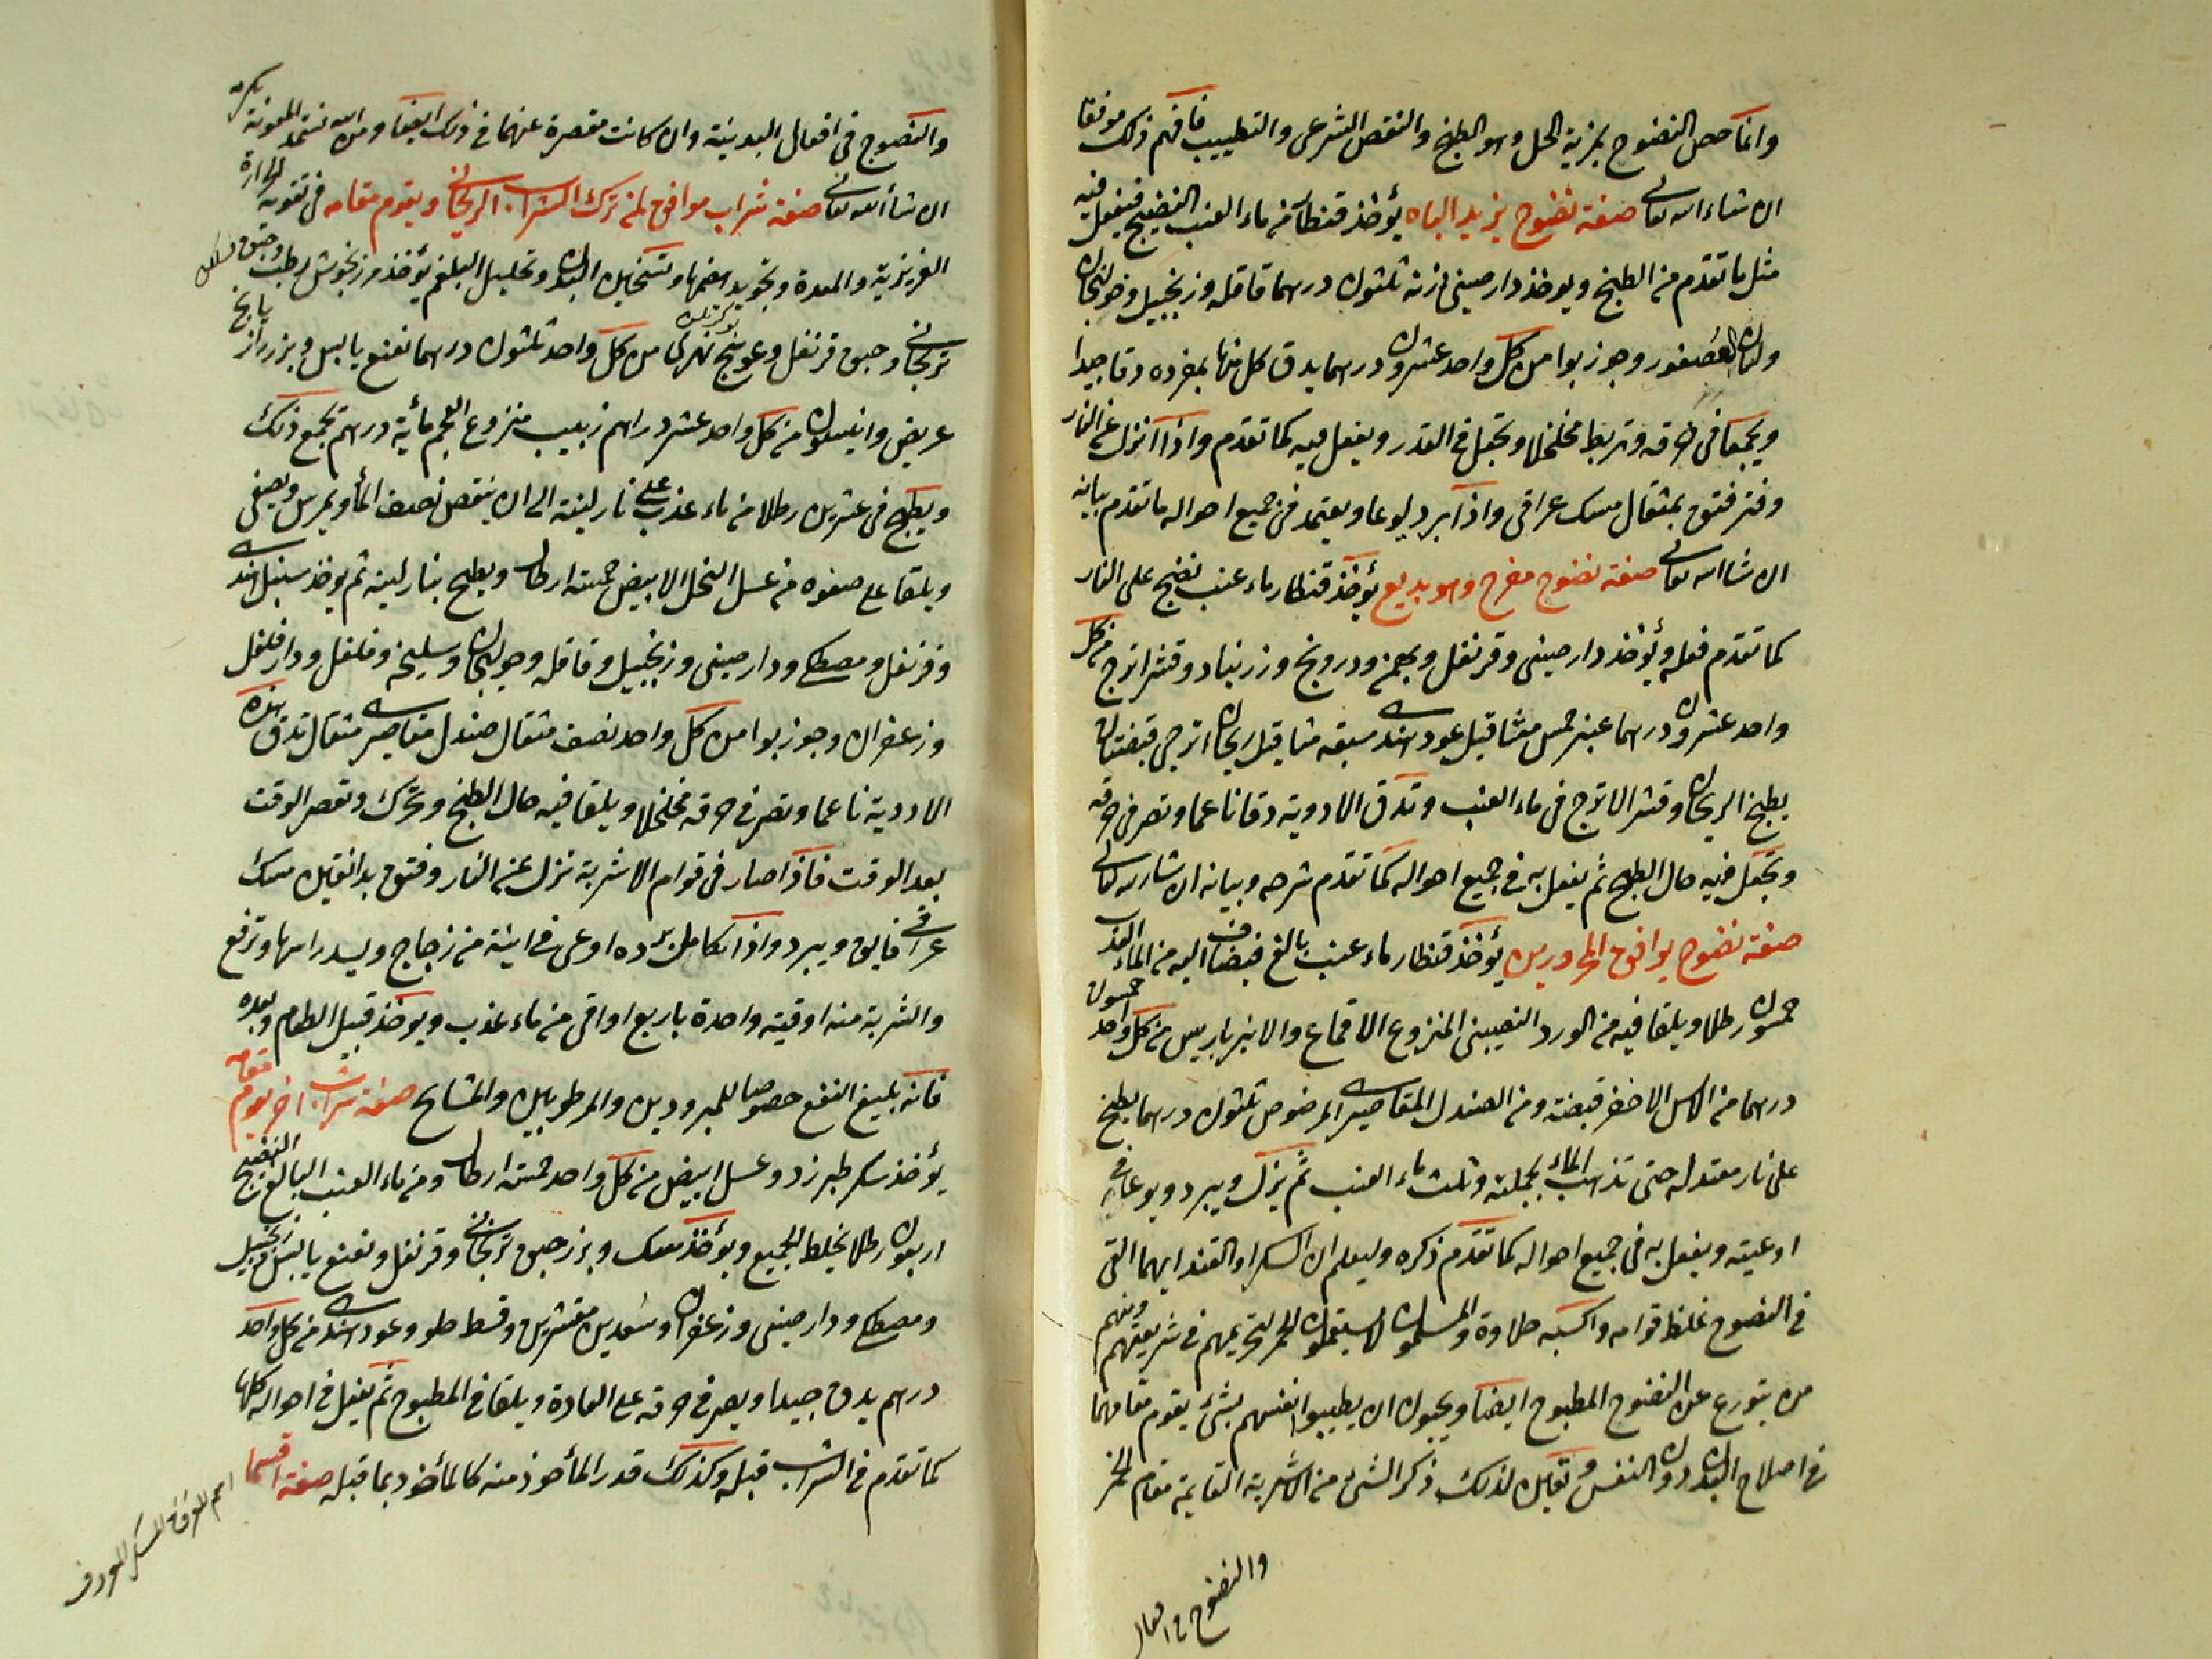 وانما خص النضوج بمزية الحل وهو الطبخ والنقص الشرعى والتطييب فافهم ذلك موفقا
ان شاء الله تعالى صفة نضوج يزيد الباه يؤخذ قنطار من ماء العنب النضيج فيفعل فيه
مثل ما تقدم من الطبخ ويوخذ دار صينى زنة ثلثون درهما قاقله وزنجبيل وخولنجان
ولسان العصفور وجوز بوا من كل واحد عشرون درهما يدق كل منها بمفرده دقا جيدا
ويجمعا فى خرقه وتربط مخلخلا وتجعل فى القدر ويفعل فيه كما تقدم واذا انزل عن النار
وفتر فتق بمثقال مسك عراقى واذا برد يوعا ويعتمد فى جميع احواله ما تقدم بيانه
ان شا الله تعالى صفة نضوج مفرح وهو بديع يؤخذ قنطار ماء عنب نضج على النار
كما تقدم فعله ويؤخذ دار صينى وقرنفل وبهمن ودرونج وزرنباد وقشر اترج من كل
واحد عشرون درهما عنبر خمس مثاقيل عود هندى سبعه مثاقيل ريحان اترجى قبضتان
يطبخ الريحان وقشر الاترج فى ماء العنب وتدق الادوية دقا ناعما وتصر فى خرقه
وتجعل فيه حال الطبخ ثم يفعل به فى جميع احواله كما تقدم شرحه وبيانه ان شا الله تعالى
صفة نضوج يوافق المحرورين يؤخذ قنطار ماء عنب بالغ فيضاف اليه من الماء العذب
خمسون رطلا ويلقا فيه من الورد النصيبينى المنزوع الاقماع والانبرباريس من كل واحد خمسون
درهما من الاس الاخضر قبضة ومن الصندل المقاصيرى المرضوض ثلثون درهما يطبخ
على نار معتدله حتى تذهب الماء بجملته وثلث ماء العنب ثم ينزل ويبرد ويوعا فى
اوعيته ويفعل به فى جميع احواله كما تقدم ذكره وليعلم ان السكر او القند ايهما القى
فى النضوج غلظ قوامه واكسبه حلاوة والمسلمون لا يستعملون الخمر لتحريمهم فى شريعتهم ومنهم
من يتورع عن النضوج المطبوخ ايضا ويحبون ان يطيبوا انفسهم بشئ يقوم مقامهما
فى اصلاح البدن وذكر الشئ من الاشربة القايمة مقام الخمر
والنضوج فى افعال
والنضوج فى افعال البدنية وان كانت مقصرة عنهما فى ذلك ايضا ومن الله نستمد المعونة بكرمه
ان شاء الله تعالى صفة شراب موافق لمن ترك الشراب الريحانى ويقوم مقامه فى تقوية الحرارة
الغريزية والمعدة وتجويد هضمها وتسخين البدن وتحليل البلغم يؤخذ مرزنجوش رطب وحبق
ترنجانى وحبق قرنفل وعوبنج نهرى من كل واحد ثلثون درهما نعنع يابس وبزر رازيانج
عريض وانيسون من كل واحد عشر دراهم زبيب منزوع العجم مأية درهم تجمع ذلك
ويطبخ فى عشرين رطلا من ماء عذب على نار لينة الى ان ينقص نصف الماء ويمرس ويصفى
ويلقا على صفوه من عسل النحل الابيض خمسة ارطال ويطبخ بنار لينه ثم يوخذ سنبل هندى
وقرنفل ومصطكى ودار صينى وزنجبيل وقاقله وخولنجان وسليخه وفلفل ودار فلفل
وزعفران وجوز بوا من كل واحد نصف مثقال صندل مقاصيرى مثقال تدق هذه
الادوية ناعما وتصر فى خرقه مخلخلا ويلقا فيه حال الطبخ وتحرك وتعصر الوقت
بعد الوقت فاذا صار فى قوام الاشربة نزل عن النار وفتق بدانقين مسك
عراقى فايق ويبرد واذا تكامل برده اوعى فى انية من زجاج ويسد راسها وترفع
والشربة منه اوقية واحدة باربع اواقى من ماء عذب ويوخذ قبل الطعام وبعده
فانه بليغ النفع خصوصا للمبرودين والمرطوبين والمشايخ صفة شراب اخر يقوم مقامه
يؤخذ سكر طبرزد وعسل ابيض من كل واحد خمسة ارطال ومن ماء العنب البالغ النضيج
اربعون رطلا يخلط الجميع ويؤخذ مسك وبزر حبق ترنجانى وقرنفل ونعنع يابس وزنجبيل
ومصطكى ودار صينى وزعفران وسعدين مقشرين وقسط حلو وعود هندى من كل واحد
درهم يدق جيدا ويصر فى خرقه على العادة ويلقا فى المطبوخ ثم يفعل فى احواله كلها
كما تقدم فى الشراب قبله وكذلك قدر المأخوذ منه كالمأخوذ بما قبله صفة اقسما
اسم للعرقى المسكر المعروف